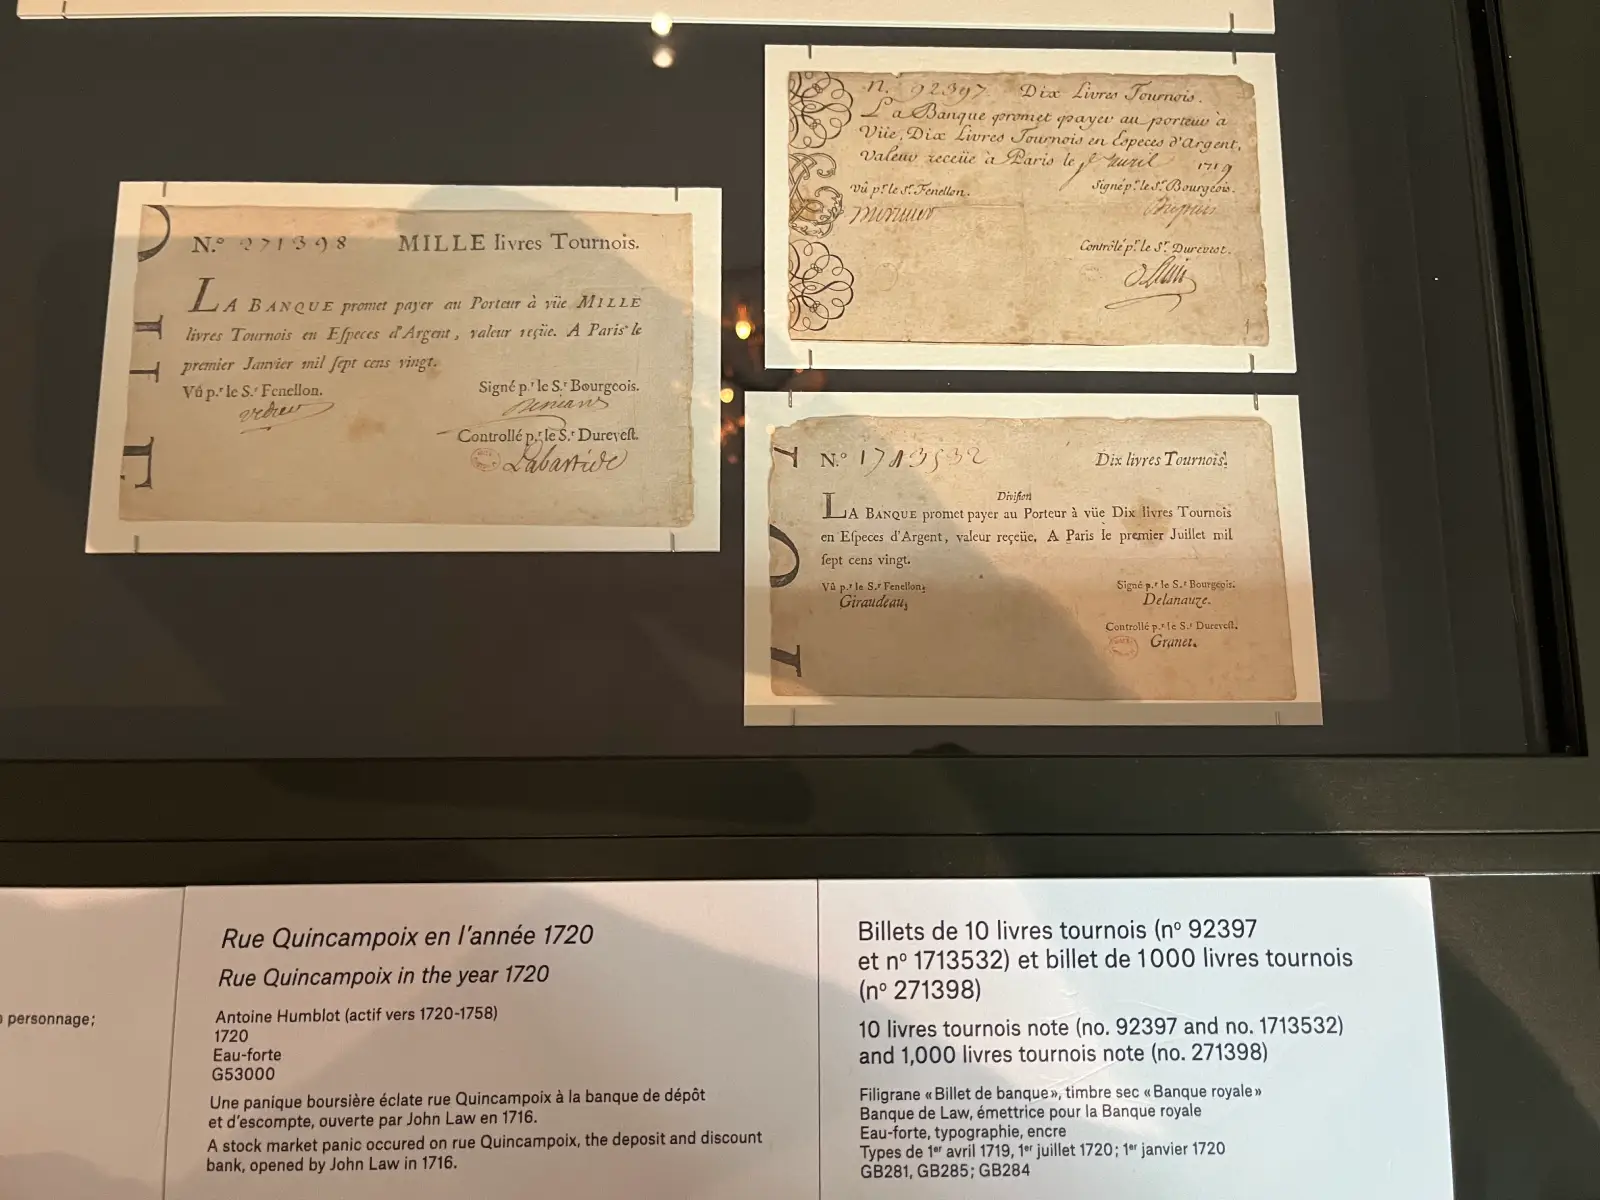 N.º 271398 MILLE livres Tournois.
LA BANQUE promet payer au Porteur à vüe MILLE
livres Tournois en Eſpeces d'Argent, valeur reçüe. A Paris le
premier Janvier mil ſept cens vingt.
Vû p.r le S.r Fenellon.
Signé p.r le S.r Bourgeois.
Controllé p.r le S.r Dureveſt.
Labastide
N. 92397. Dix Livres Tournois.
La Banque promet payer au porteur à
Vüe, Dix Livres Tournois en Especes d'Argent,
Valeur receüe à Paris le 1.er Avril 1719
Vû p.r le S.r Fenellon.
Signé p.r le S.r Bourgeois.
Contrôlé p.r le S.r Durevest.
N.º 1713532 Dix livres Tournois.
Diviſion
LA BANQUE promet payer au Porteur à vüe Dix livres Tournois
en Eſpeces d'Argent, valeur reçeüe. A Paris le premier Juillet mil
ſept cens vingt.
Vû p.r le S.r Fenellon,
Giraudeau,
Signé p.r le S.r Bourgeois.
Delanauze.
Controllé p.r le S.r Dureveſt.
Granet.
personnage;
Rue Quincampoix en l'année 1720
Rue Quincampoix in the year 1720
Antoine Humblot (actif vers 1720-1758)
1720
Eau-forte
G53000
Une panique boursière éclate rue Quincampoix à la banque de dépôt
et d'escompte, ouverte par John Law en 1716.
A stock market panic occured on rue Quincampoix, the deposit and discount
bank, opened by John Law in 1716.
Billets de 10 livres tournois (nº 92397
et nº 1713532) et billet de 1000 livres tournois
(nº 271398)
10 livres tournois note (no. 92397 and no. 1713532)
and 1,000 livres tournois note (no. 271398)
Filigrane « Billet de banque », timbre sec « Banque royale »
Banque de Law, émettrice pour la Banque royale
Eau-forte, typographie, encre
Types de 1er avril 1719, 1er juillet 1720 ; 1er janvier 1720
GB281, GB285; GB284